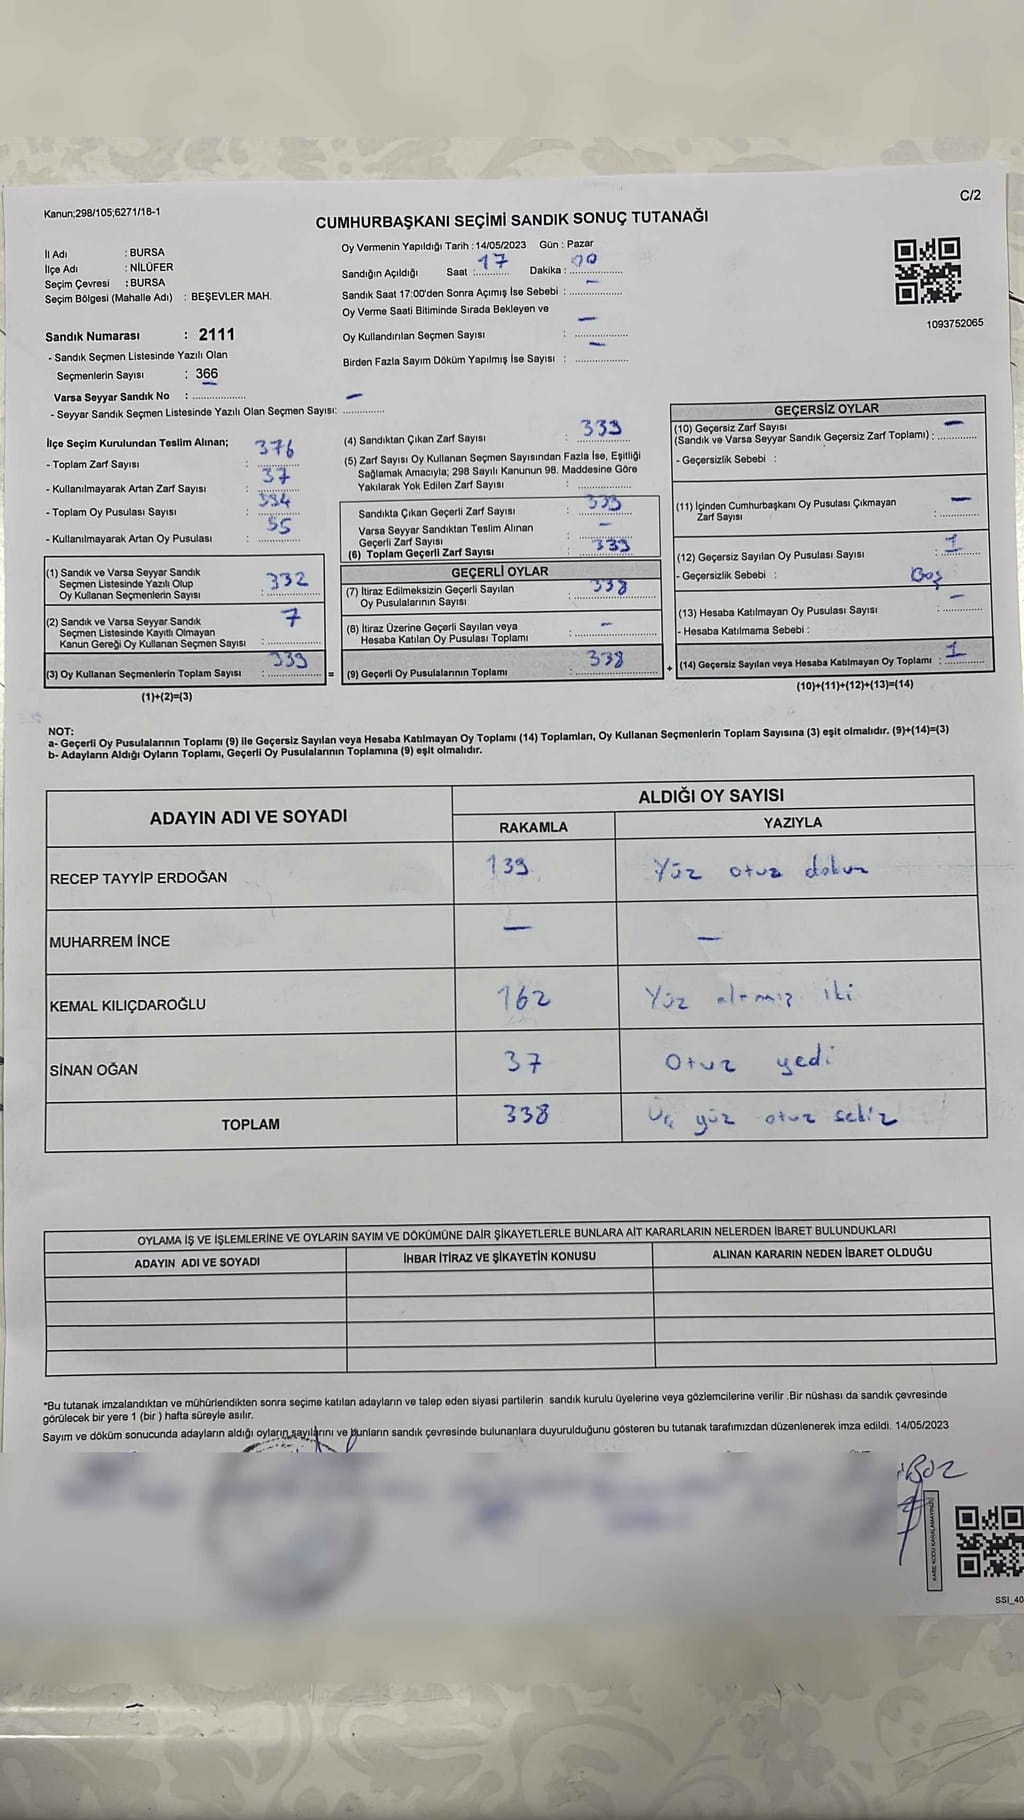 Kanun;298/105;6271/18-1
C/2
CUMHURBAŞKANI SEÇİMİ SANDIK SONUÇ TUTANAĞI
İl Adı : BURSA
İlçe Adı : NİLÜFER
Seçim Çevresi : BURSA
Seçim Bölgesi (Mahalle Adı) : BEŞEVLER MAH.
Oy Vermenin Yapıldığı Tarih : 14/05/2023 Gün : Pazar
Sandığın Açıldığı Saat : 17 Dakika : 00
Sandık Saat 17:00'den Sonra Açımış İse Sebebi : –
Oy Verme Saati Bitiminde Sırada Bekleyen ve
Oy Kullandırılan Seçmen Sayısı : –
Birden Fazla Sayım Döküm Yapılmış İse Sayısı : –
1093752065
Sandık Numarası : 2111
- Sandık Seçmen Listesinde Yazılı Olan
Seçmenlerin Sayısı : 366
Varsa Seyyar Sandık No :
- Seyyar Sandık Seçmen Listesinde Yazılı Olan Seçmen Sayısı: –
İlçe Seçim Kurulundan Teslim Alınan;
- Toplam Zarf Sayısı : 376
- Kullanılmayarak Artan Zarf Sayısı : 37
- Toplam Oy Pusulası Sayısı : 394
- Kullanılmayarak Artan Oy Pusulası : 55
(1) Sandık ve Varsa Seyyar Sandık
Seçmen Listesinde Yazılı Olup
Oy Kullanan Seçmenlerin Sayısı : 332
(2) Sandık ve Varsa Seyyar Sandık
Seçmen Listesinde Kayıtlı Olmayan
Kanun Gereği Oy Kullanan Seçmen Sayısı : 7
(3) Oy Kullanan Seçmenlerin Toplam Sayısı : 339
(1)+(2)=(3)
=
(4) Sandıktan Çıkan Zarf Sayısı : 339
(5) Zarf Sayısı Oy Kullanan Seçmen Sayısından Fazla İse, Eşitliği
Sağlamak Amacıyla; 298 Sayılı Kanunun 98. Maddesine Göre
Yakılarak Yok Edilen Zarf Sayısı :
Sandıkta Çıkan Geçerli Zarf Sayısı : 339
Varsa Seyyar Sandıktan Teslim Alınan
Geçerli Zarf Sayısı : –
(6) Toplam Geçerli Zarf Sayısı : 339
GEÇERLİ OYLAR
(7) İtiraz Edilmeksizin Geçerli Sayılan
Oy Pusulalarının Sayısı : 338
(8) İtiraz Üzerine Geçerli Sayılan veya
Hesaba Katılan Oy Pusulası Toplamı : –
(9) Geçerli Oy Pusulalarının Toplamı : 338
+
GEÇERSİZ OYLAR
(10) Geçersiz Zarf Sayısı
(Sandık ve Varsa Seyyar Sandık Geçersiz Zarf Toplamı) : –
- Geçersizlik Sebebi :
(11) İçinden Cumhurbaşkanı Oy Pusulası Çıkmayan
Zarf Sayısı : –
(12) Geçersiz Sayılan Oy Pusulası Sayısı : 1
- Geçersizlik Sebebi : Boş
(13) Hesaba Katılmayan Oy Pusulası Sayısı : –
- Hesaba Katılmama Sebebi :
(14) Geçersiz Sayılan veya Hesaba Katılmayan Oy Toplamı : 1
(10)+(11)+(12)+(13)=(14)
NOT:
a- Geçerli Oy Pusulalarının Toplamı (9) ile Geçersiz Sayılan veya Hesaba Katılmayan Oy Toplamı (14) Toplamları, Oy Kullanan Seçmenlerin Toplam Sayısına (3) eşit olmalıdır. (9)+(14)=(3)
b- Adayların Aldığı Oyların Toplamı, Geçerli Oy Pusulalarının Toplamına (9) eşit olmalıdır.
ADAYIN ADI VE SOYADI ALDIĞI OY SAYISI
RAKAMLA YAZIYLA
RECEP TAYYİP ERDOĞAN 139 Yüz otuz dokuz
MUHARREM İNCE – –
KEMAL KILIÇDAROĞLU 162 Yüz altmış iki
SİNAN OĞAN 37 Otuz yedi
TOPLAM 338 Üç yüz otuz sekiz
OYLAMA İŞ VE İŞLEMLERİNE VE OYLARIN SAYIM VE DÖKÜMÜNE DAİR ŞİKAYETLERLE BUNLARA AİT KARARLARIN NELERDEN İBARET BULUNDUKLARI
ADAYIN ADI VE SOYADI İHBAR İTİRAZ VE ŞİKAYETİN KONUSU ALINAN KARARIN NEDEN İBARET OLDUĞU
*Bu tutanak imzalandıktan ve mühürlendikten sonra seçime katılan adayların ve talep eden siyasi partilerin sandık kurulu üyelerine veya gözlemcilerine verilir .Bir nüshası da sandık çevresinde
görülecek bir yere 1 (bir ) hafta süreyle asılır.
Sayım ve döküm sonucunda adayların aldığı oyların sayılarını ve bunların sandık çevresinde bulunanlara duyurulduğunu gösteren bu tutanak tarafımızdan düzenlenerek imza edildi. 14/05/2023
KARE KODU KARALAMAYINIZ
SSI_40